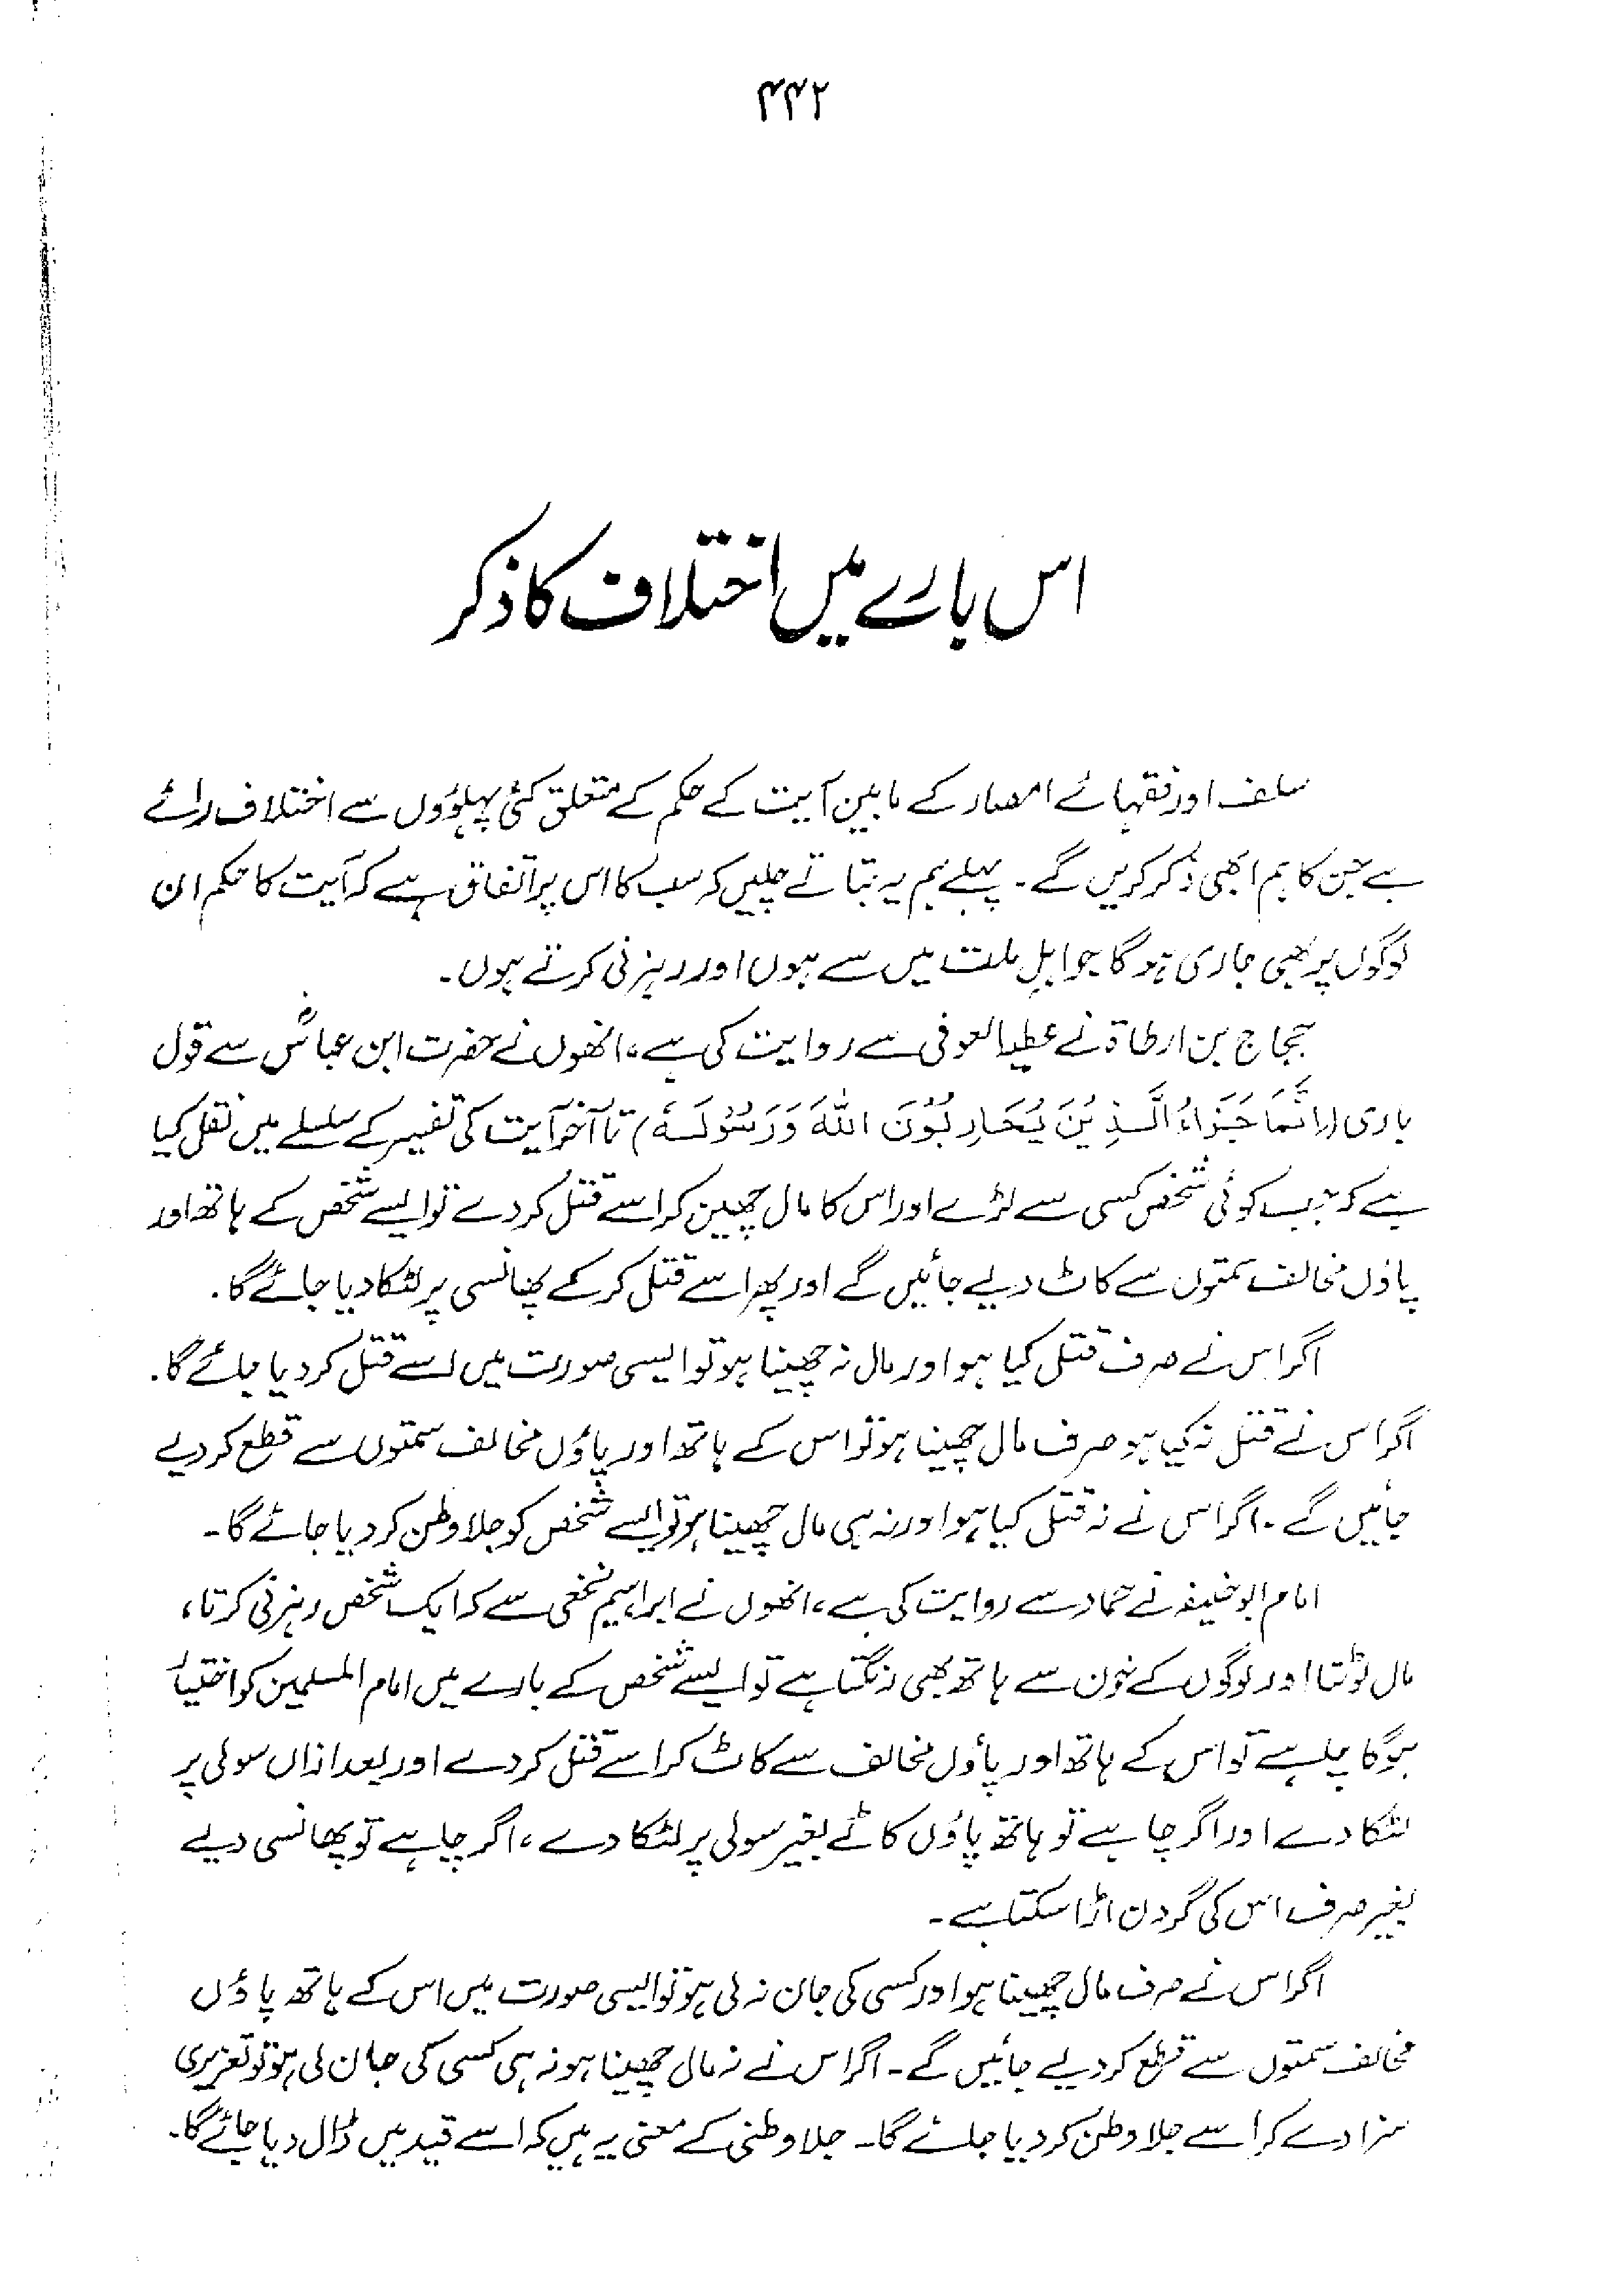 ۴۴۲
اس بارے میں اختلاف کا ذکر
سلف اور فقہائے امصار کے مابین آیت کے حکم کے متعلق کئی پہلوؤں سے اختلاف رائے
ہے جن کا ہم ابھی ذکر کریں گے۔ پہلے ہم یہ بتاتے چلیں کہ سب کا اس پر اتفاق ہے کہ آیت کا حکم ان
لوگوں پر بھی جاری ہوگا جو اہلِ ملت میں سے ہوں اور رہزنی کرتے ہوں۔
حجاج بن ارطاۃ نے عطیہ العوفی سے روایت کی ہے، انھوں نے حضرت ابن عباسؓ سے قول
باری (اِنَّمَا جَزَاءُ الَّذِیْنَ یُحَارِبُوْنَ اللّٰہَ وَرَسُوْلَہٗ) تا آخر آیت کی تفسیر کے سلسلے میں نقل کیا
ہے کہ جب کوئی شخص کسی سے لڑے اور اس کا مال چھین کر اسے قتل کر دے تو ایسے شخص کے ہاتھ اور
پاؤں مخالف سمتوں سے کاٹ دیے جائیں گے اور پھر اسے قتل کر کے پھانسی پر لٹکا دیا جائے گا۔
اگر اس نے صرف قتل کیا ہو اور مال نہ چھینا ہو تو ایسی صورت میں اسے قتل کر دیا جائے گا۔
اگر اس نے قتل نہ کیا ہو صرف مال چھینا ہو تو اس کے ہاتھ اور پاؤں مخالف سمتوں سے قطع کر دیے
جائیں گے۔ اگر اس نے نہ قتل کیا ہو اور نہ ہی مال چھینا ہو تو ایسے شخص کو جلا وطن کر دیا جائے گا۔
امام ابوحنیفہ نے حماد سے روایت کی ہے، انھوں نے ابراہیم نخعی سے کہ ایک شخص رہزنی کرتا،
مال لوٹتا اور لوگوں کے خون سے ہاتھ بھی رنگتا ہے تو ایسے شخص کے بارے میں امام المسلمین کو اختیار
ہوگا چاہے تو اس کے ہاتھ اور پاؤں مخالف سے کاٹ کر اسے قتل کر دے اور بعد ازاں سولی پر
لٹکا دے اور اگر چاہے تو ہاتھ پاؤں کاٹے بغیر سولی پر لٹکا دے، اگر چاہے تو پھانسی دیے
بغیر صرف اس کی گردن اڑا سکتا ہے۔
اگر اس نے صرف مال چھینا ہو اور کسی کی جان نہ لی ہو تو ایسی صورت میں اس کے ہاتھ پاؤں
مخالف سمتوں سے قطع کر دیے جائیں گے۔ اگر اس نے نہ مال چھینا ہو نہ ہی کسی کی جان لی ہو تو تعزیری
سزا دے کر اسے جلا وطن کر دیا جائے گا۔ جلا وطنی کے معنی یہ ہیں کہ اسے قید میں ڈال دیا جائے گا۔